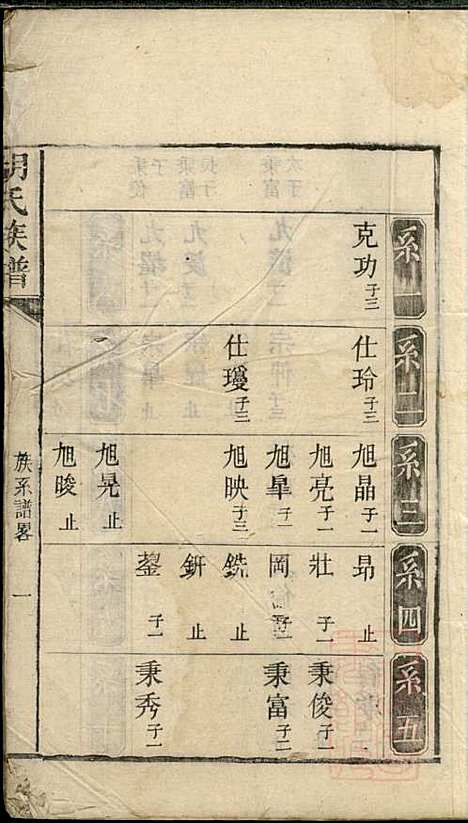 系一
克功子三
系二
仕玲子三
仕璦子三
系三
旭晶子一
旭亮子一
旭臯子一
旭映子三
旭晃止
旭晙止
系四
昂止
壯子一
岡子二
銑止
銒止
鋆子一
系五
秉俊子一
秉富子二
秉秀子一
胡氏族譜
族系譜畧
一